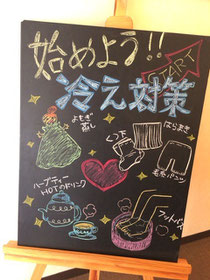 始めよう!!
START
冷え対策
よもぎ
蒸し
くつ下
はらまき
毛糸パンツ
ハーブティー
HOTのドリンク
フットバス